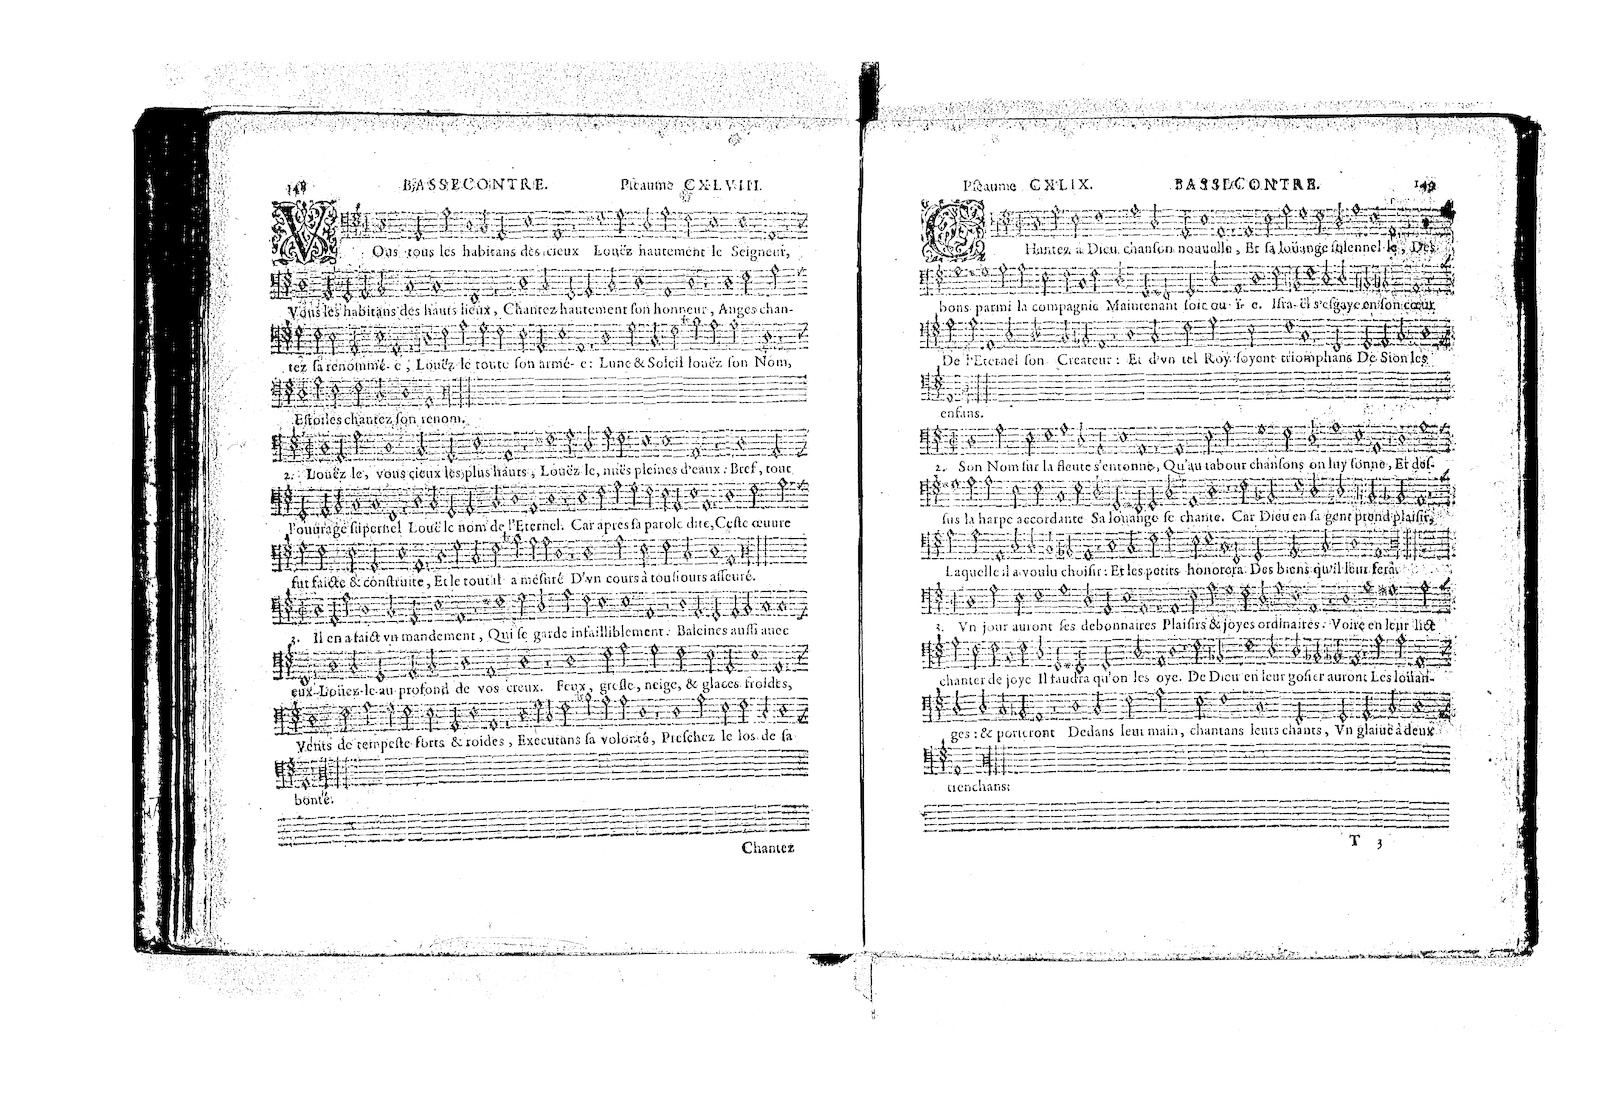 148 BASSECONTRE. Pſeaume CXLVIII.
VOus tous les habitans des cieux Louëz hautement le Seigneur,
Vous les habitans des hauts lieux, Chantez hautement ſon honneur, Anges chan-
tez ſa renommé- e, Louëz le toute ſon armé- e: Lune & Soleil louëz ſon Nom,
Eſtoiles chantez ſon renom.
2. Louëz le, vous cieux les plus hauts, Louëz le, nuës pleines d'eaux: Bref, tout
l'ouurage ſupernel Louë le nom de l'Eternel. Car apres ſa parole dite, Ceſte œuure
fut faicte & conſtruite, Et le tout il a meſuré D'vn cours à touſiours aſſeuré.
3. Il en a faict vn mandement, Qui ſe garde infailliblement. Baleines auſſi auec
eux Louez-le au profond de vos creux. Feux, greſle, neige, & glaces froides,
Vents de tempeſte forts & roides, Executans ſa volonté, Preſchez le los de ſa
bonté.
Chantez
Pſeaume CXLIX. BASSECONTRE. 149
CHantez à Dieu chanſon nouuelle, Et ſa louange ſolennel-le, Des
bons parmi la compagnie Maintenant ſoit ou- ï- e. Iſra-ël s'eſgaye en ſon cœur
De l'Eternel ſon Createur: Et d'vn tel Roy ſoyent triomphans De Sion les
enfans.
2. Son Nom ſur la fleute s'entonne, Qu'au tabour chanſons on luy ſonne, Et deſ-
ſus la harpe accordante Sa louange ſe chante. Car Dieu en ſa gent prend plaiſir,
Laquelle il a voulu choiſir: Et les petits honorera Des biens qu'il leur fera.
3. Vn jour auront ſes debonnaires Plaiſirs & joyes ordinaires. Voire en leur lict
chanter de joye Il faudra qu'on les oye. De Dieu en leur goſier auront Les louan-
ges: & porteront Dedans leur main, chantans leurs chants, Vn glaiue à deux
trenchans:
T 3